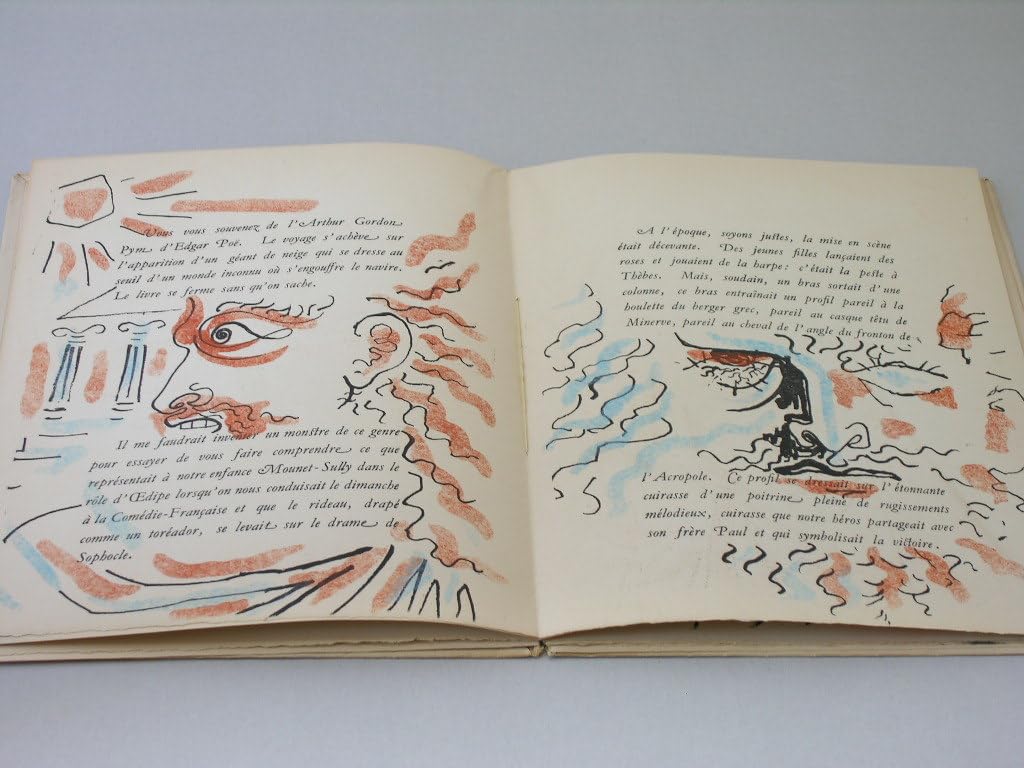 Vous vous souvenez de l'Arthur Gordon
Pym d'Edgar Poé. Le voyage s'achève sur
l'apparition d'un géant de neige qui se dresse au
seuil d'un monde inconnu où s'engouffre le navire.
Le livre se ferme sans qu'on sache.
Il me faudrait inventer un monstre de ce genre
pour essayer de vous faire comprendre ce que
représentait à notre enfance Mounet-Sully dans le
rôle d'Œdipe lorsqu'on nous conduisait le dimanche
à la Comédie-Française et que le rideau, drapé
comme un toréador, se levait sur le drame de
Sophocle.
A l'époque, soyons justes, la mise en scène
était décevante. Des jeunes filles lançaient des
roses et jouaient de la harpe : c'était la peste à
Thèbes. Mais, soudain, un bras sortait d'une
colonne, ce bras entraînait un profil pareil à la
houlette du berger grec, pareil au casque têtu de
Minerve, pareil au cheval de l'angle du fronton de
l'Acropole. Ce profil se dressait sur l'étonnante
cuirasse d'une poitrine pleine de rugissements
mélodieux, cuirasse que notre héros partageait avec
son frère Paul et qui symbolisait la victoire.